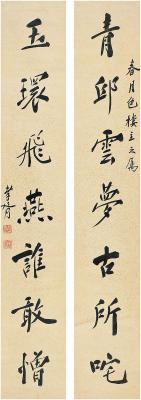 青邱雲夢古所吒
春月色樓主之屬
玉環飛燕誰敢憎